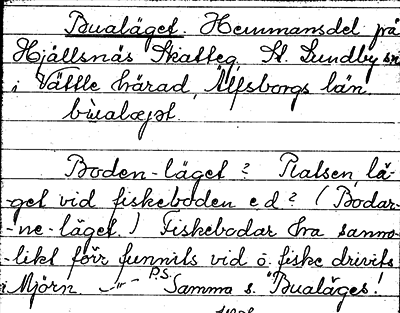 Bualäget. Hemmansdel på
Hjällsnäs Skatteg, St. Lundby sn
i Vättle härad, Älfsborgs län.
bùalæget.
Boden-läget? Platsen, lä-
get vid fiskeboden e d? (Bodar-
-ne-läget.) Fiskebodar ha sanno-
-likt förr funnits vid o. fiske drivits
i Mjörn. —"— P.S. Samma s. "Bualäges!